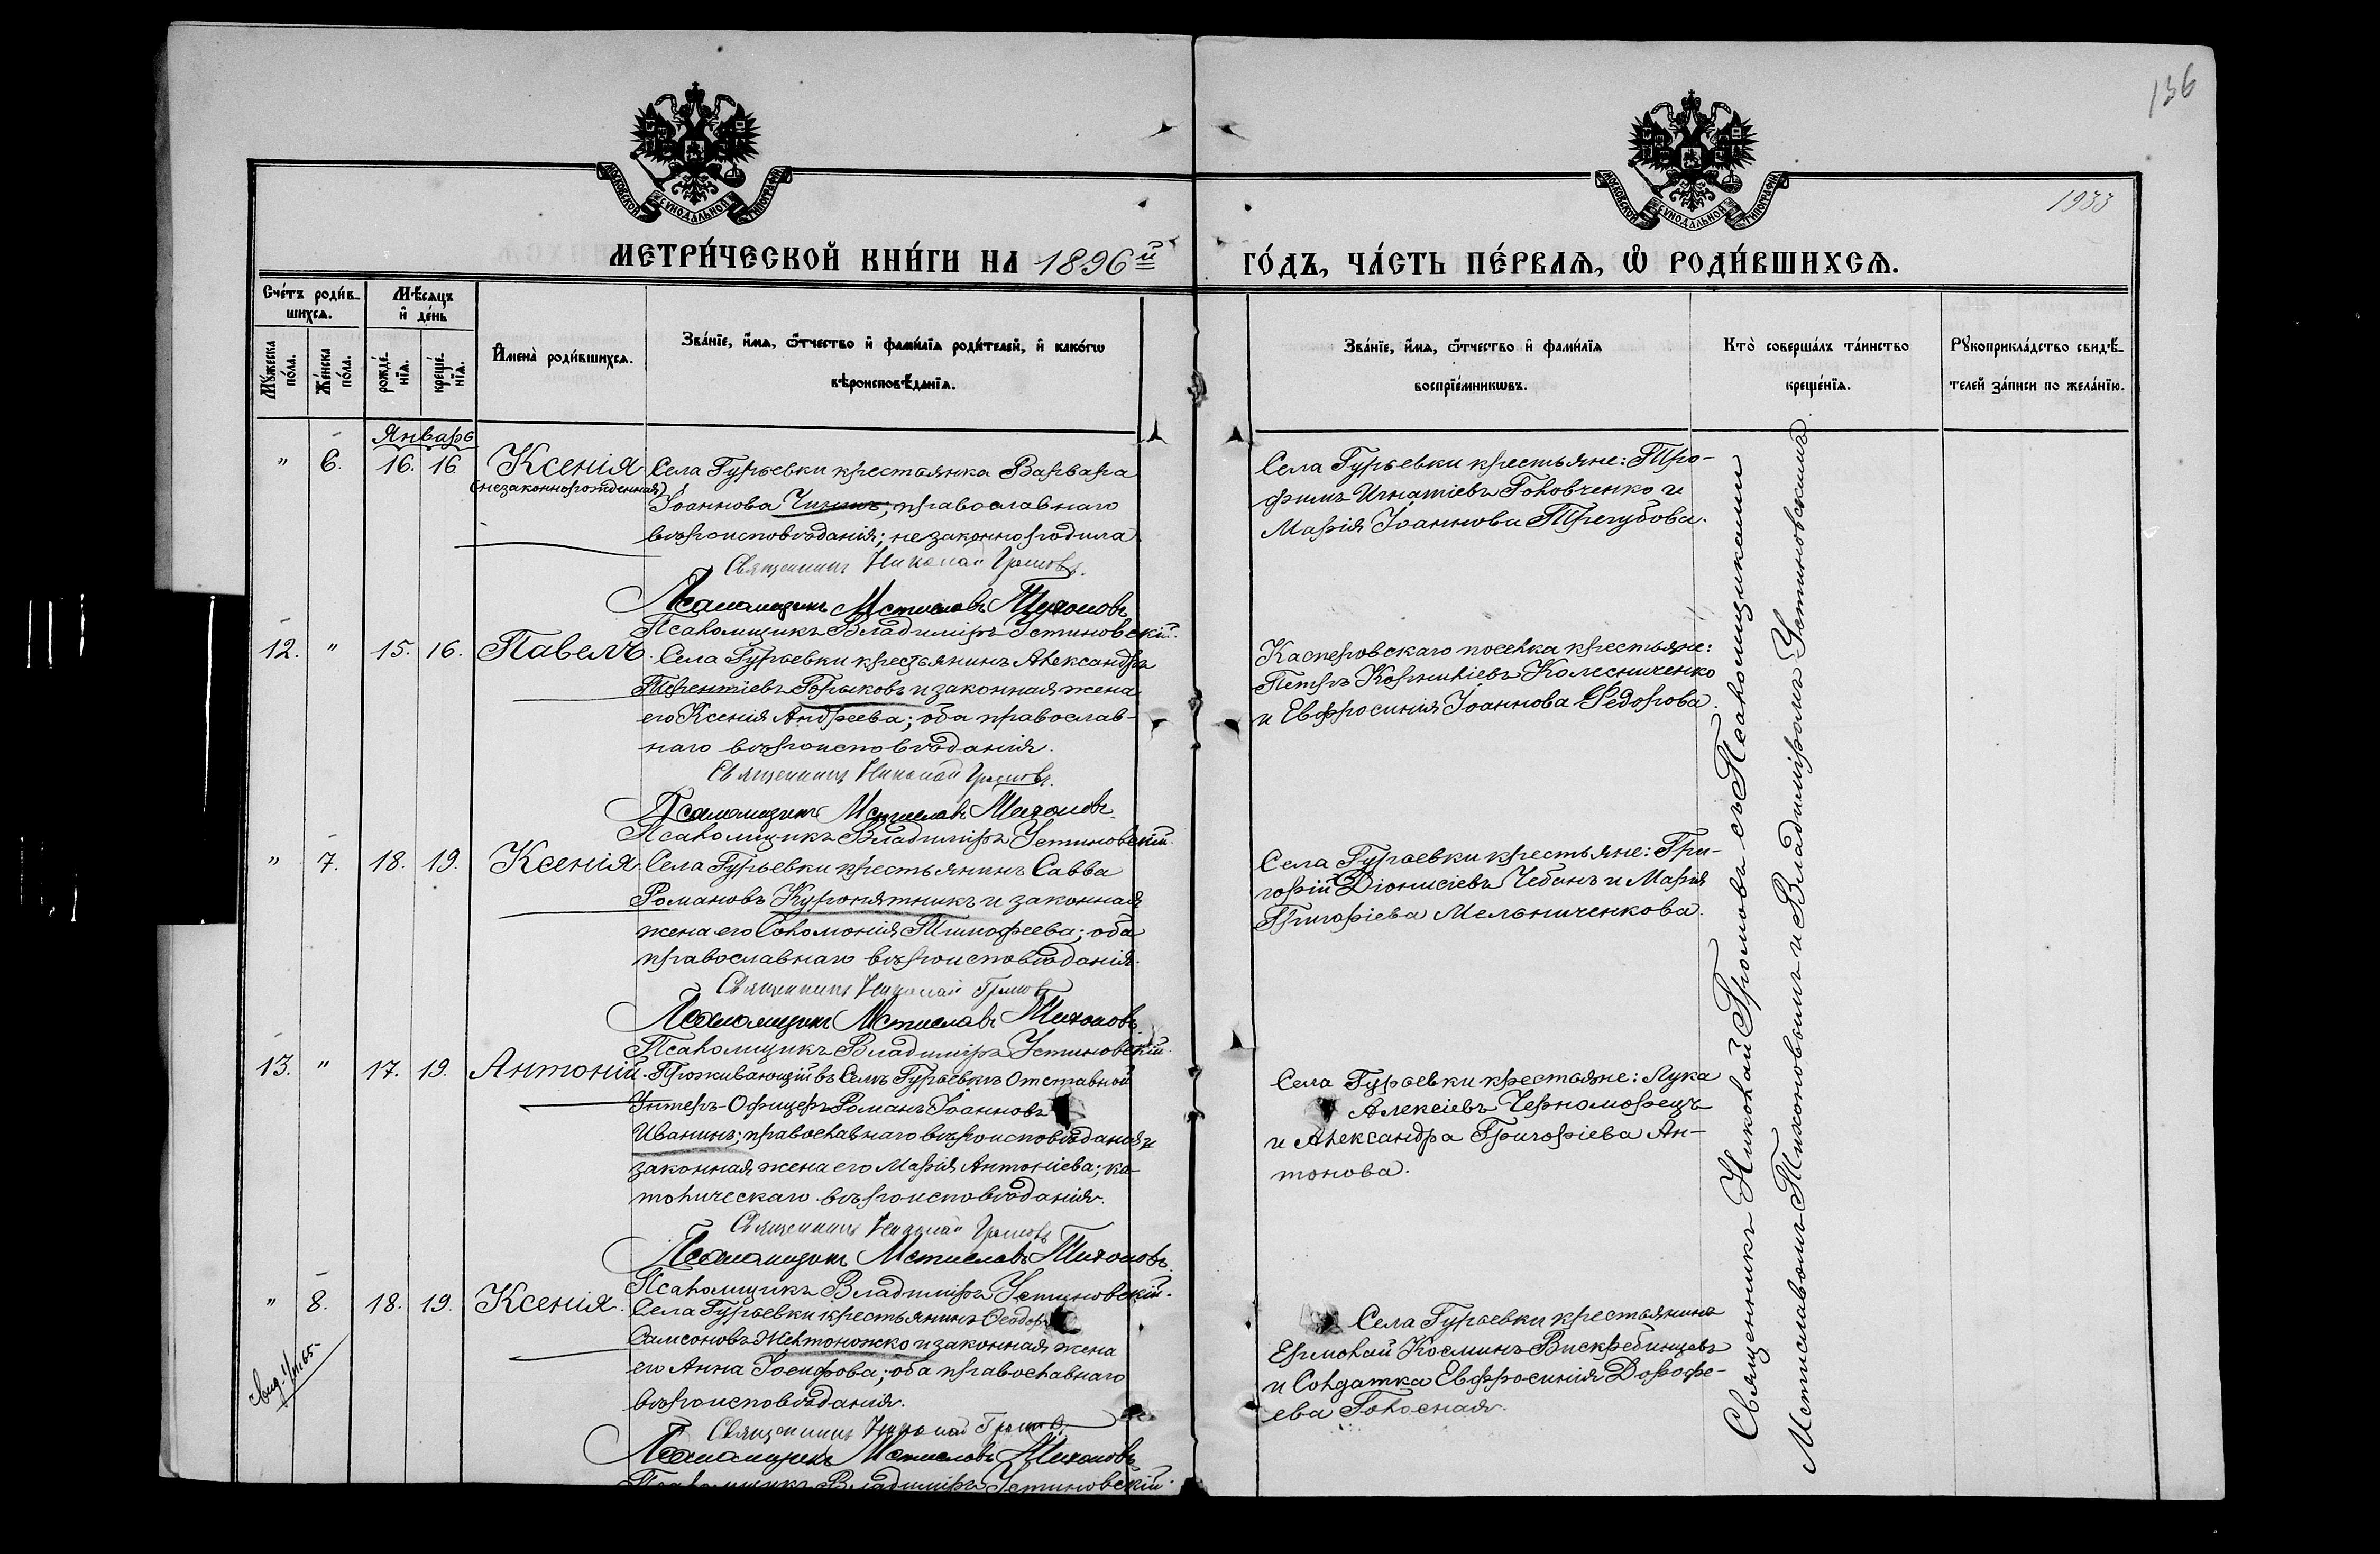 136
1933
МОСКОВСКОЙ СУНОДАЛЬНОЙ ТИПОГРАФИИ
МОСКОВСКОЙ СУНОДАЛЬНОЙ ТИПОГРАФИИ
МЕТРИ́ЧЕСКОЙ КНИ́ГИ НА 1896й ГО́ДЪ, ЧА́СТЬ ПЕ́РВАѦ, Ѡ҆ РОДИ́ВШИХСѦ.
Сче́тъ роди́в-
шихсѧ.
Мѣ́сѧцъ
и҆ де́нь
Мꙋ́жеска
по́ла.
Же́нска
по́ла.
рожде́-
нїѧ.
креще́-
нїѧ.
И҆мена̀ роди́вшихсѧ.
Зва́нїе, и҆́мѧ, ѻ҆́тчество и҆ фами́лїѧ роди́телей, и҆ како́гѡ
вѣроисповѣ́данїѧ.
Зва́нїе, и҆́мѧ, ѻ҆́тчество и҆ фами́лїѧ
воспрїе́мникѡвъ.
Кто̀ соверша́лъ та́инство
креще́нїѧ.
Рꙋкоприкла́дство свидѣ́-
телей за́писи по жела́нїю.
Январь
" 6. 16. 16 Ксенія
(незаконнорожденная)
Села Гурьевки крестьянка Варвара
Іоаннова Чижикъ, православнаго
вѣроисповѣданія; незаконно родила
Священникъ Николай Громовъ.
Псаломщикъ Мстиславъ Тихоновъ
Псаломщикъ Владиміръ Устиновскій.
Села Гурьевки крестьяне: Тро-
фимъ Игнатіевъ Головченко и
Марія Іоаннова Трегубова.
12. " 15. 16. Павелъ.
Села Гурьевки крестьянинъ Александръ
Терентіевъ Горыковъ и законная жена
его Ксенія Андреева; оба православ-
наго вѣроисповѣданія.
Священникъ Николай Громовъ.
Псаломщикъ Мстиславъ Тихоновъ
Псаломщикъ Владиміръ Устиновскій.
Касперовскаго поселка крестьяне:
Петръ Корниліевъ Колесниченко
и Евфросинія Іоаннова Федорова.
" 7. 18. 19. Ксенія.
Села Гурьевки крестьянинъ Савва
Романовъ Куропятникъ и законная
жена его Соломонія Тимофеева; оба
православнаго вѣроисповѣданія.
Священникъ Николай Громовъ
Псаломщикъ Мстиславъ Тихоновъ
Псаломщикъ Владиміръ Устиновскій.
Села Гурьевки крестьяне: Гри-
горій Діонисіевъ Чебанъ и Марія
Григоріева Мельниченкова.
13. " 17. 19. Антоній.
Проживающій въ Селѣ Гурьевкѣ Отставной
Унтеръ-Офицеръ Романъ Іоанновъ
Иванинъ; православнаго вѣроисповѣданія и
законная жена его Марія Антоніева; ка-
толическаго вѣроисповѣданія.
Священникъ Николай Громовъ
Псаломщикъ Мстиславъ Тихоновъ.
Псаломщикъ Владиміръ Устиновскій.
Села Гурьевки крестьяне: Лука
Алексіевъ Черноморецъ
и Александра Григоріева Ан-
тонова.
" 8. 18. 19. Ксенія.
Села Гурьевки крестьянинъ Ѳеодоръ
Самсоновъ Желтоножко и законная жена
его Анна Іосифова; оба православнаго
вѣроисповѣданія.
Священникъ Николай Громовъ
Псаломщикъ Мстиславъ Тихоновъ
Псаломщикъ Владиміръ Устиновскій.
Села Гурьевки крестьянинъ
Ермолай Косминъ Вискребинцевъ
и Солдатка Евфросинія Дорофе-
ева Голосная.
Священникъ Николай Громовъ съ Псаломщиками
Мстиславомъ Тихоновымъ и Владиміромъ Устиновскимъ